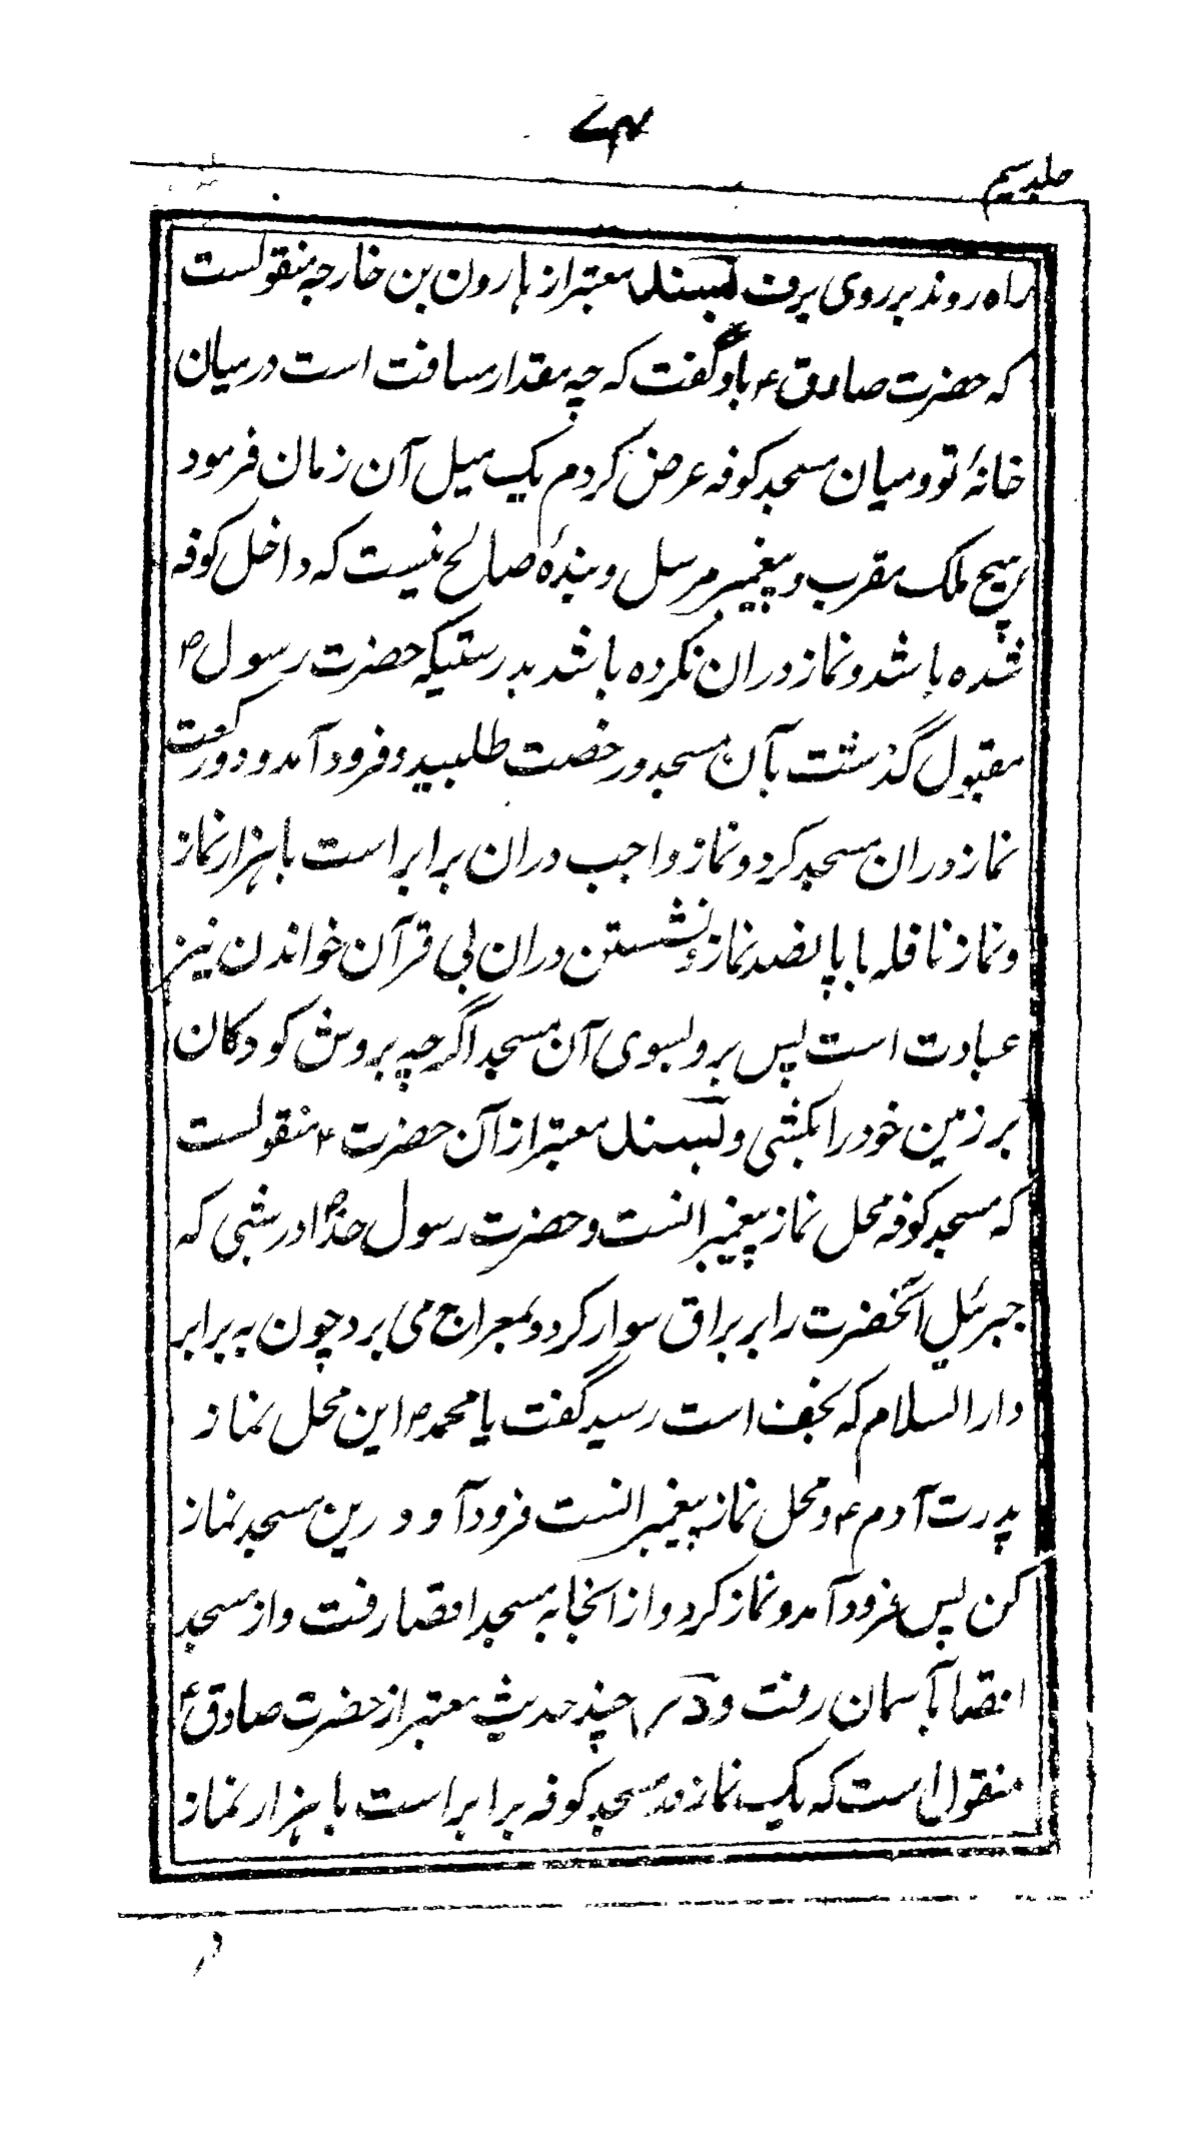 جلد سیم
راه روند بر روی برف بسند معتبر از هارون بن خارجه منقولست
که حضرت صادق ع باو گفت که چه مقدار مسافت است در میان
خانهٔ تو و میان مسجد کوفه عرض کردم یک میل آن زمان فرمود
هیچ ملک مقرب و پیغمبر مرسل و بندهٔ صالح نیست که داخل کوفه
شده باشد و نماز دران نکرده باشد بدرستیکه حضرت رسول ص
مقبول گذشت بآن مسجد و رخصت طلبید و فرود آمد و دو رکعت
نماز دران مسجد کرد و نماز واجب دران برابر است با هزار نماز
و نماز نافله با پانصد نماز و نشستن دران بی قرآن خواندن نیز
عبادت است پس برو بسوی آن مسجد اگرچه بروش کودکان
بر زمین خود را بکشی و بسند معتبر از آن حضرت ع منقولست
که مسجد کوفه محل نماز پیغمبرانست و حضرت رسول خدا ص در شبی که
جبرئیل آنحضرت را بر براق سوار کرد و بمعراج می برد چون به برابر
دار السلام که نجف است رسید گفت یا محمد ص این محل نماز
پدرت آدم ع و محل نماز پیغمبرانست فرود آ و درین مسجد نماز
کن پس فرود آمد و نماز کرد و از آنجا به مسجد اقصا رفت و از مسجد
اقصا بآسمان رفت و در چند حدیث معتبر از حضرت صادق ع
منقول است که یک نماز در مسجد کوفه برابر است با هزار نماز
در